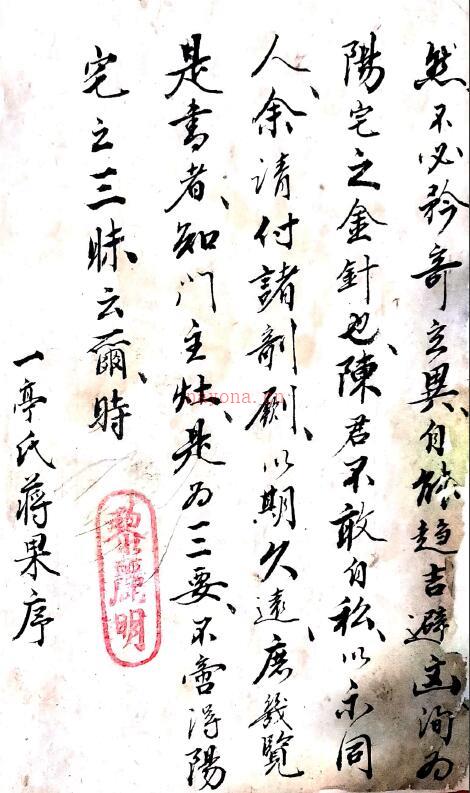 然不必矜奇立異、自能趨吉避凶洵為
陽宅之金針也、陳君不敢自私、以示同
人、余請付諸剞劂、以期久遠、庶幾覽
是書者、知門主灶、是為三要、不啻得陽
宅之三昧云爾、時
一亭氏蔣果序
黎麗明